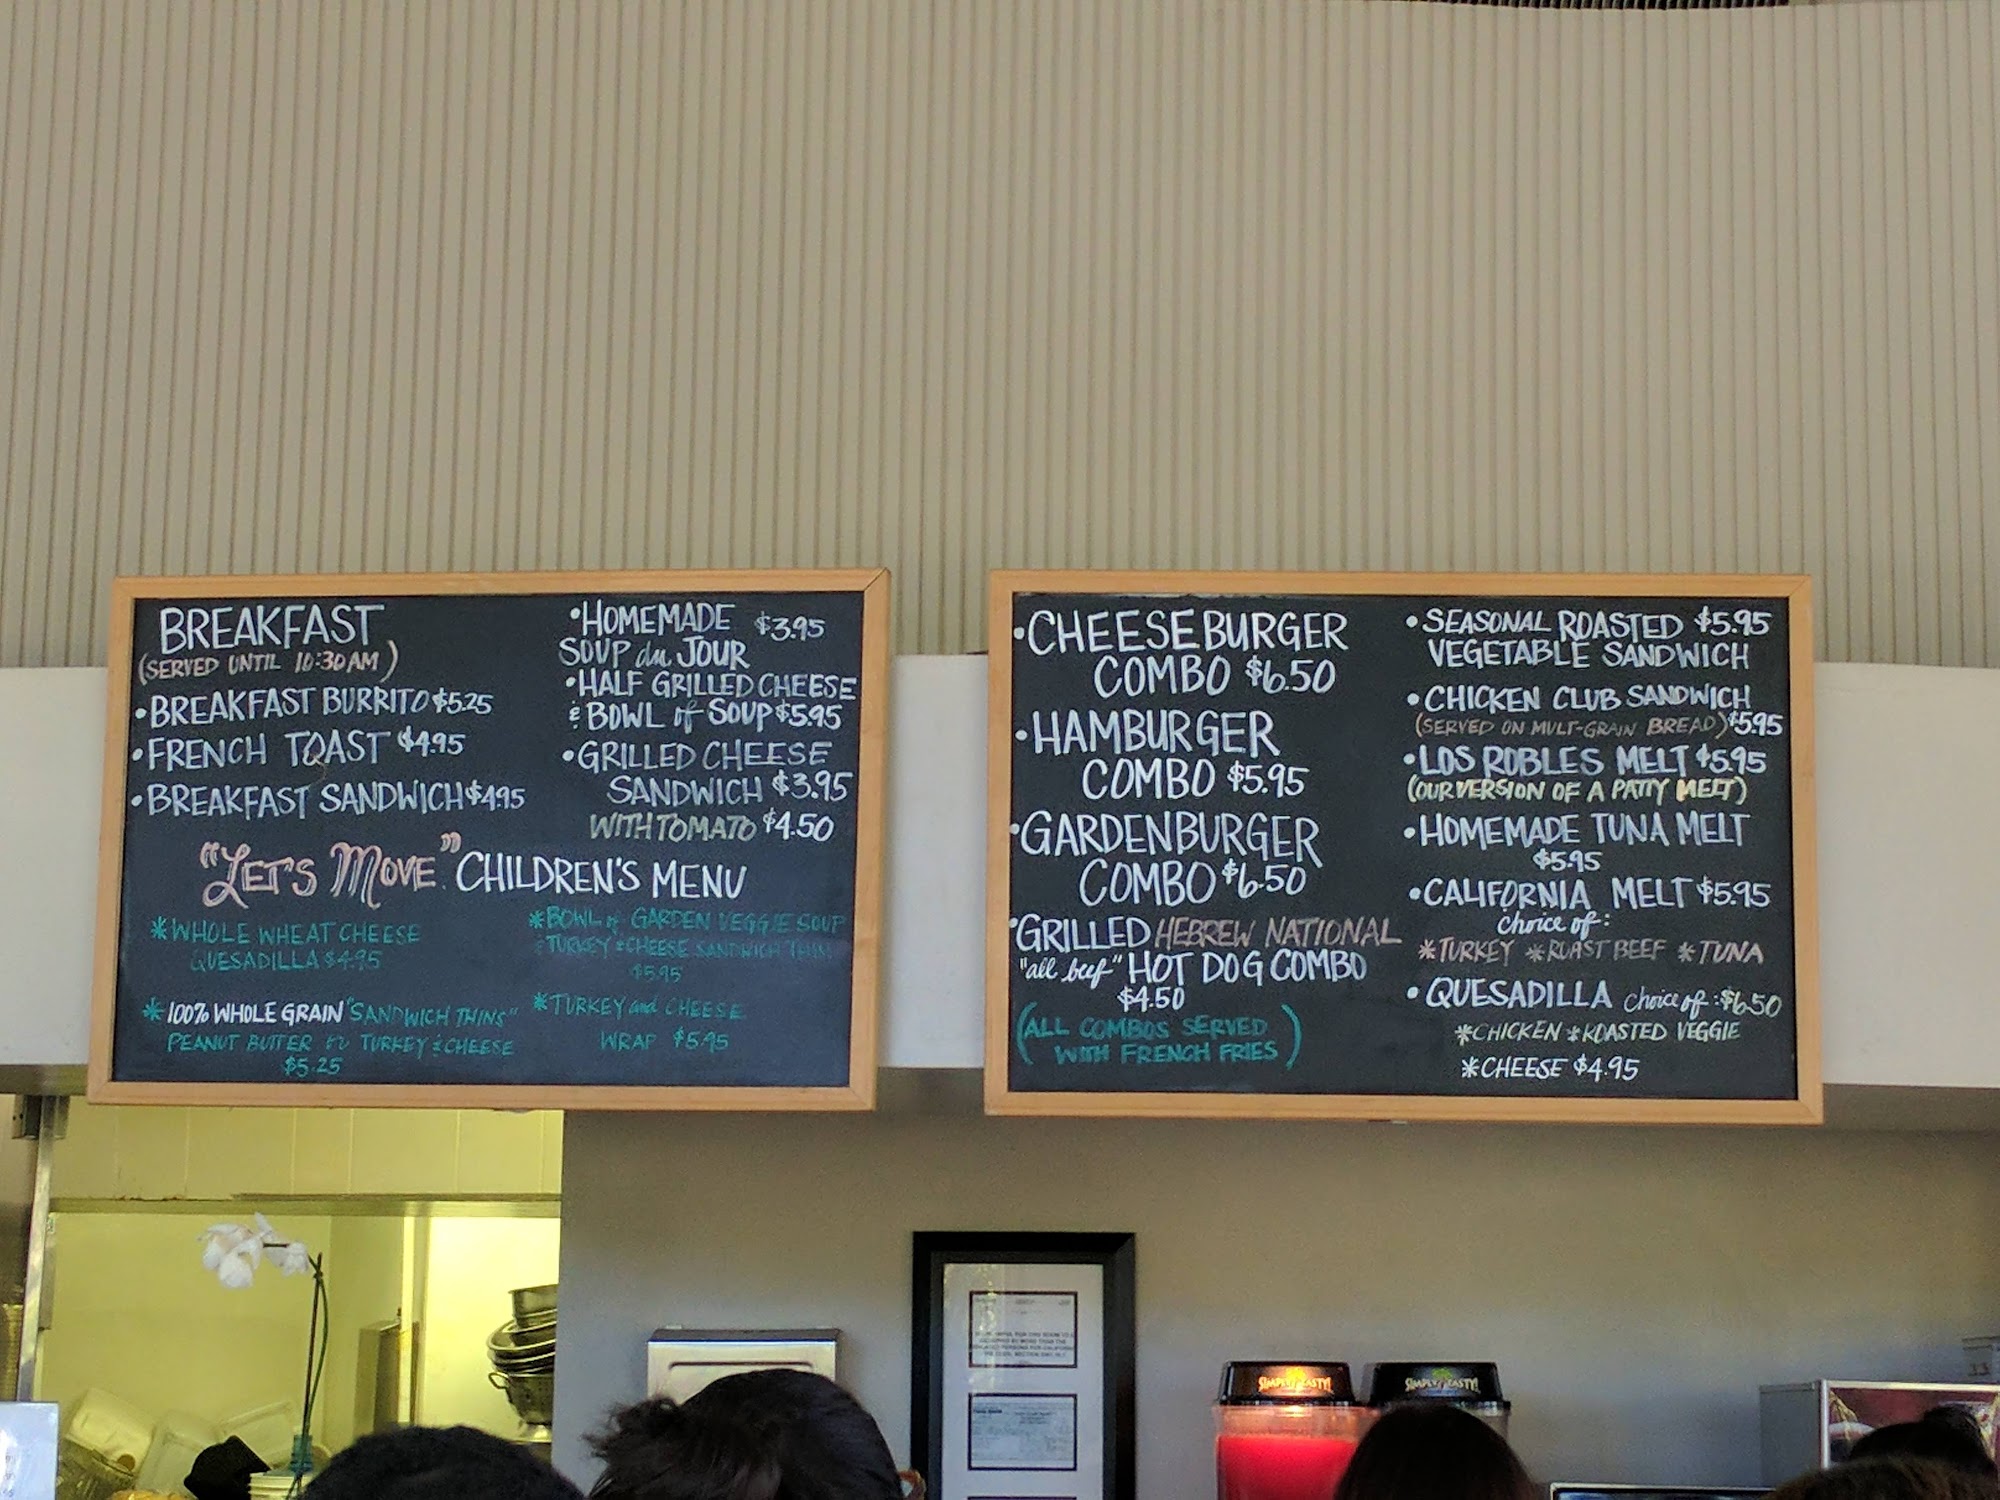 BREAKFAST
(SERVED UNTIL 10:30AM)
•BREAKFAST BURRITO $5.25
•FRENCH TOAST $4.95
•BREAKFAST SANDWICH $4.95
•HOMEMADE $3.95
SOUP du JOUR
•HALF GRILLED CHEESE
& BOWL of SOUP $5.95
•GRILLED CHEESE
SANDWICH $3.95
WITH TOMATO $4.50
"LET'S MOVE" CHILDREN'S MENU
*WHOLE WHEAT CHEESE
QUESADILLA $4.95
*100% WHOLE GRAIN "SANDWICH THINS"
PEANUT BUTTER TURKEY & CHEESE
$5.25
*BOWL of GARDEN VEGGIE SOUP
& TURKEY & CHEESE SANDWICH THIN
$5.95
*TURKEY and CHEESE
WRAP $5.95
•CHEESEBURGER
COMBO $6.50
•HAMBURGER
COMBO $5.95
•GARDENBURGER
COMBO $6.50
•GRILLED HEBREW NATIONAL
"all beef" HOT DOG COMBO
$4.50
(ALL COMBOS SERVED
WITH FRENCH FRIES)
•SEASONAL ROASTED $5.95
VEGETABLE SANDWICH
•CHICKEN CLUB SANDWICH
(SERVED ON MULT-GRAIN BREAD) $5.95
•LOS ROBLES MELT $5.95
(OUR VERSION OF A PATTY MELT)
•HOMEMADE TUNA MELT
$5.95
•CALIFORNIA MELT $5.95
choice of:
*TURKEY *ROAST BEEF *TUNA
•QUESADILLA choice of: $6.50
*CHICKEN *ROASTED VEGGIE
*CHEESE $4.95
SIMPLY TASTY!
SIMPLY TASTY!